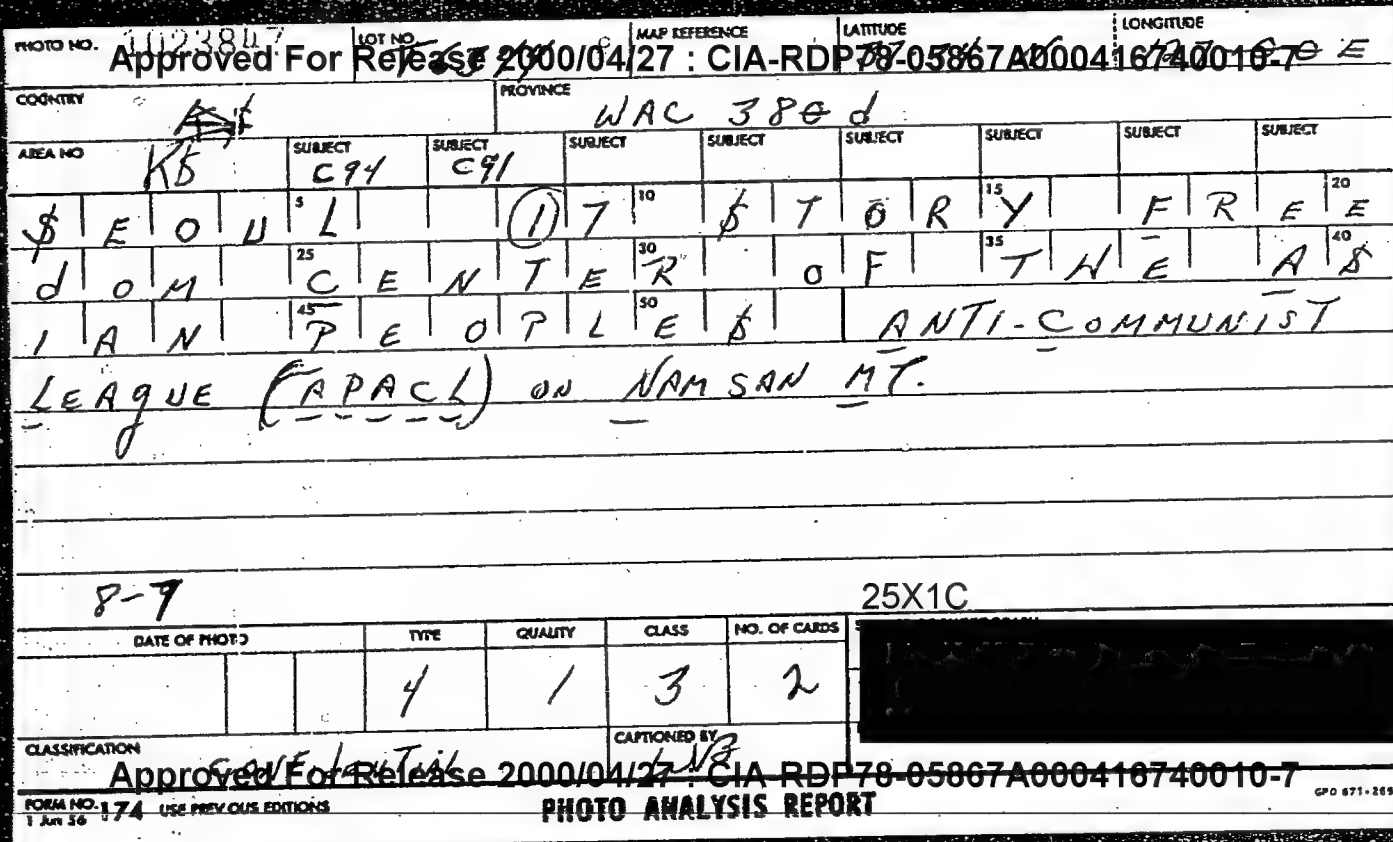 PHOTO NO. 1023847 LOT NO. MAP REFERENCE LATITUDE LONGITUDE
Approved For Release 2000/04/27 : CIA-RDP78-05867A000416740010-7
COUNTRY PROVINCE WAC 380d
AREA NO K5 SUBJECT C94 SUBJECT C91 SUBJECT SUBJECT SUBJECT SUBJECT SUBJECT SUBJECT
$EOUL 17 $TORY FREE
5 10 15 20
dOM CENTER OF THE A$
25 30 35 40
IAN PEOPLE$ ANTI-COMMUNIST
45 50
LEAgUE (APACL) ON NAMSAN MT.
8-9 25X1C
DATE OF PHOTO TYPE QUALITY CLASS NO. OF CARDS
4 1 3 2
CLASSIFICATION CAPTIONED BY
Approved For Release 2000/04/27 : CIA-RDP78-05867A000416740010-7
FORM NO. 174 USE PREVIOUS EDITIONS PHOTO ANALYSIS REPORT GPO 871-269
1 Jun 56